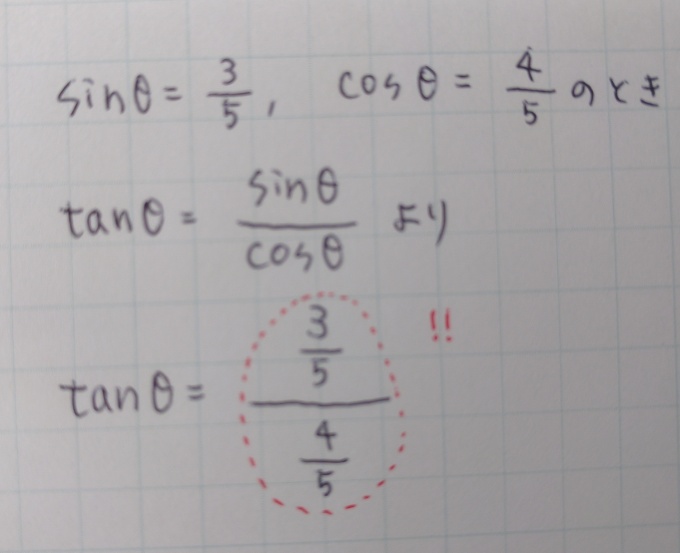 sinθ = 3/5, cosθ = 4/5 のとき
tanθ = sinθ/cosθ より
tanθ = (3/5)/(4/5) !!